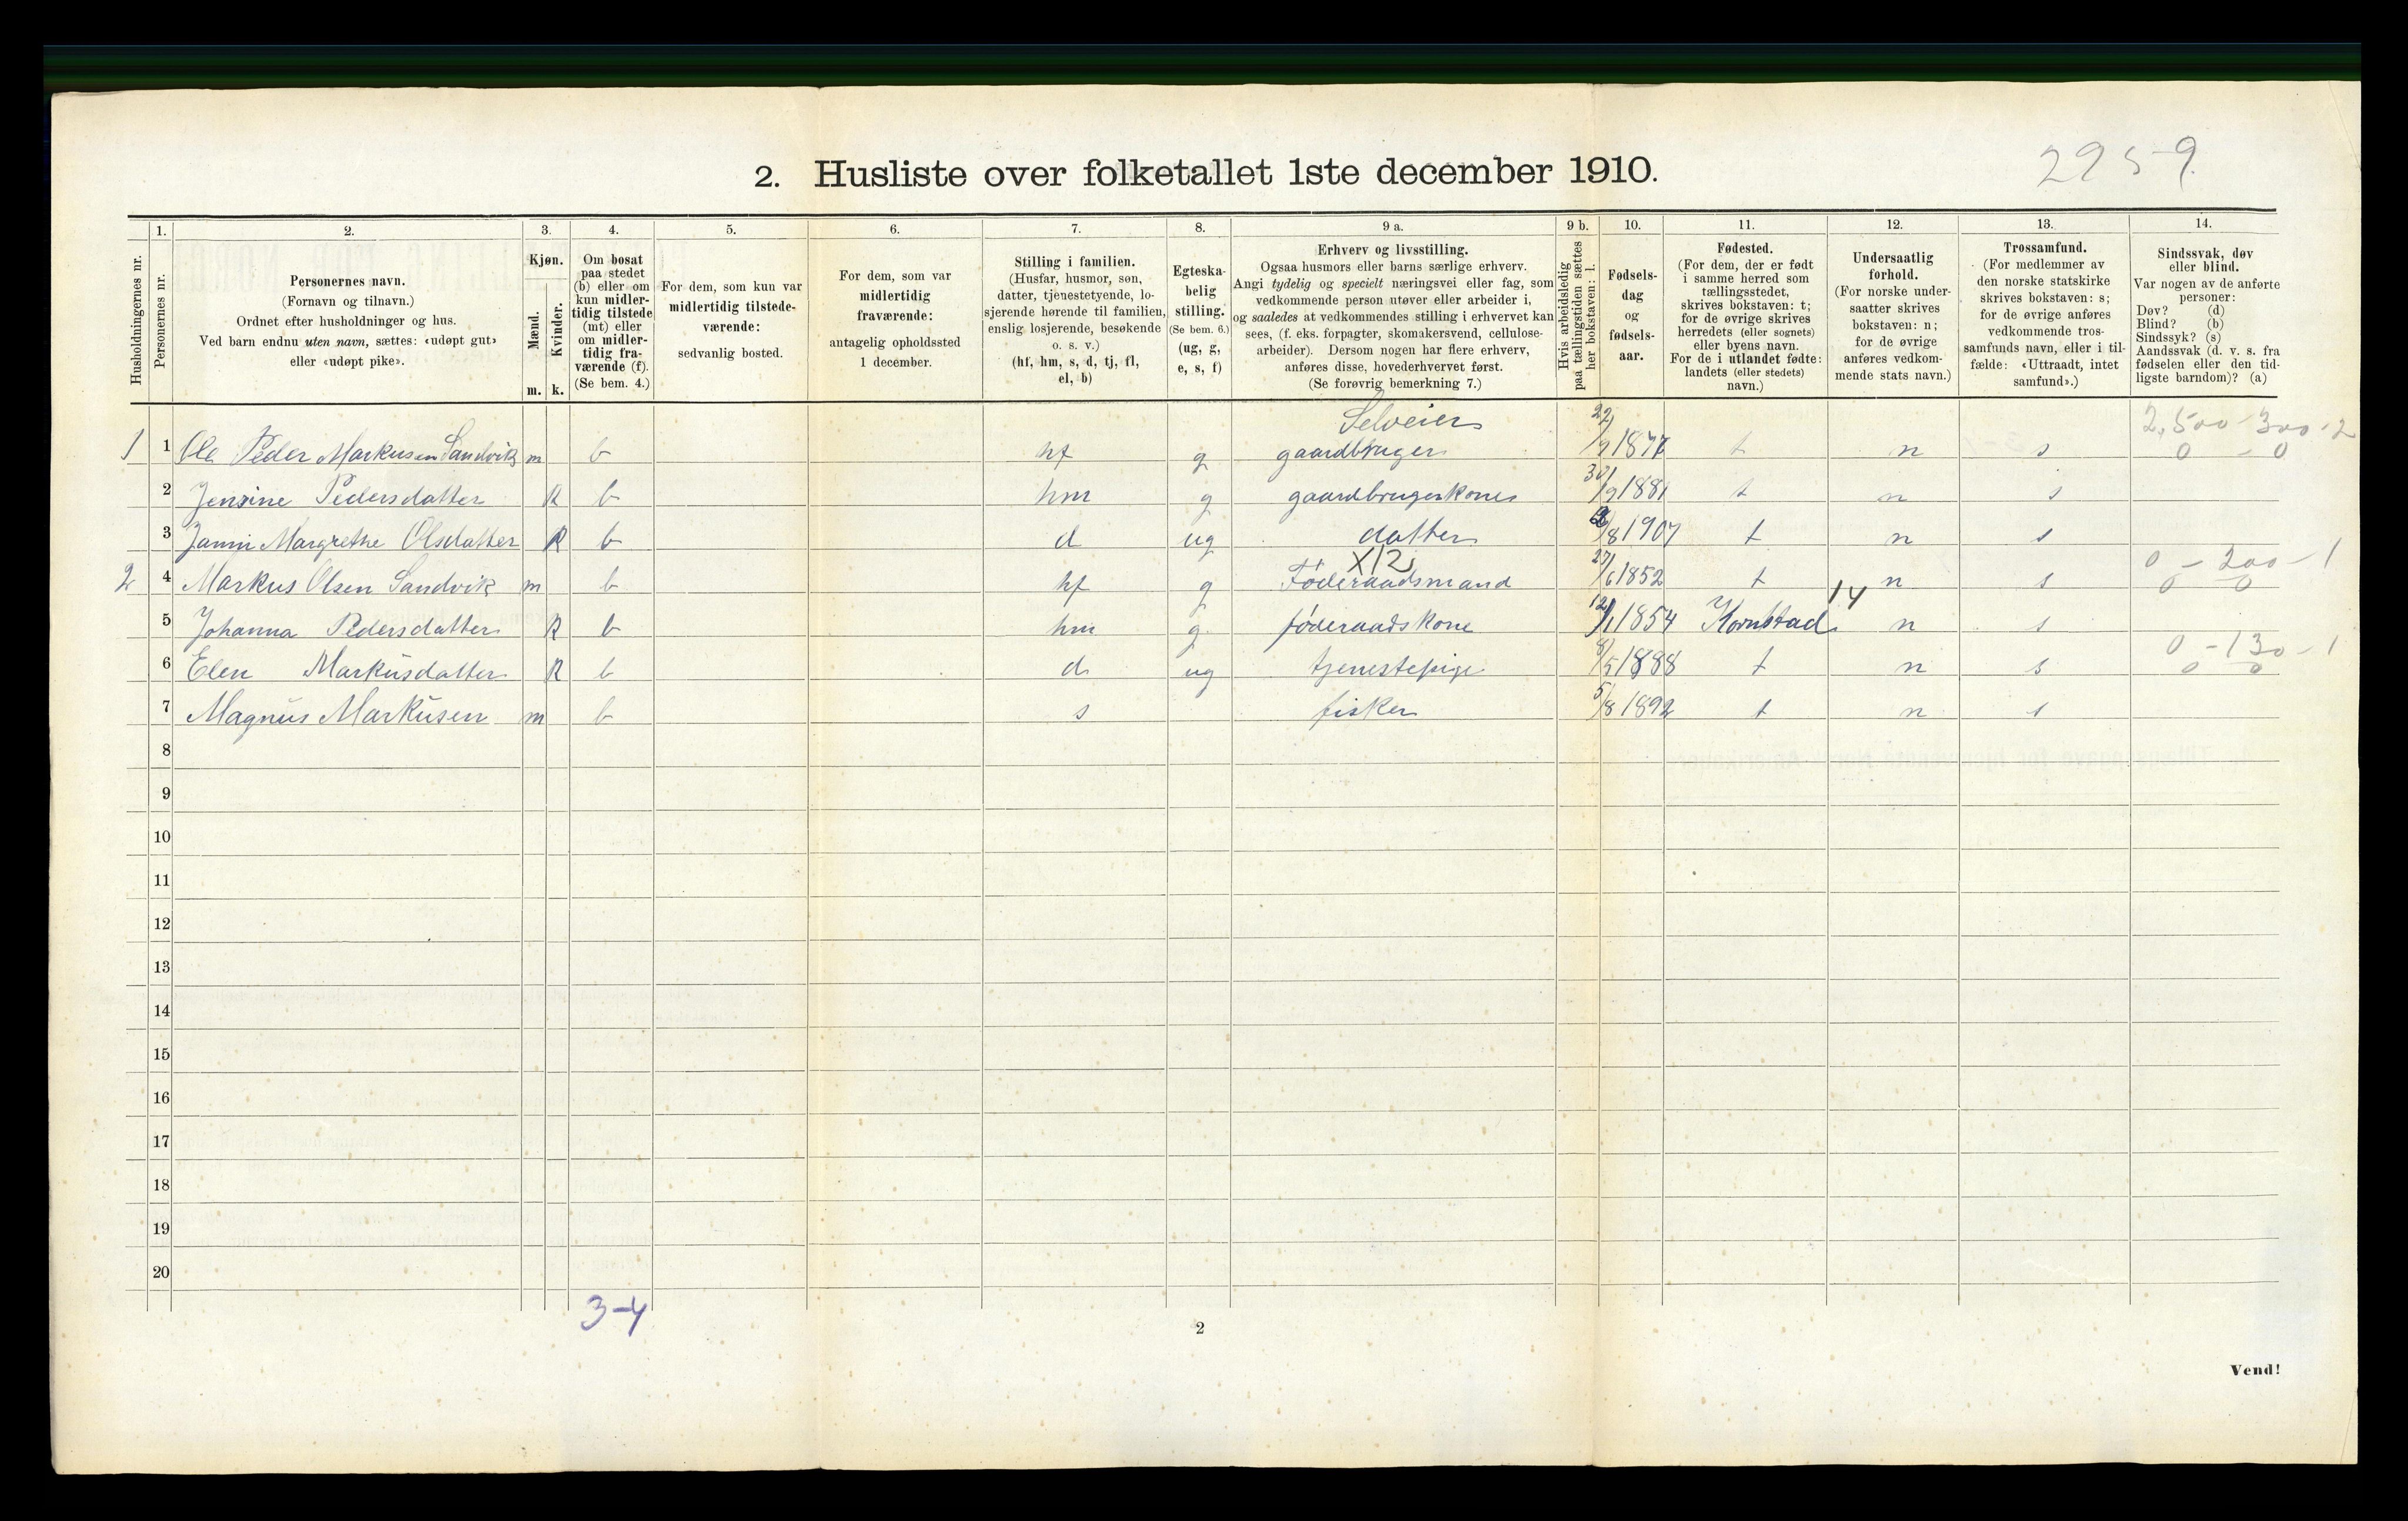 2. Husliste over folketallet 1ste december 1910.
2259.
Husholdningernes nr.
1.
Personernes nr.
2.
Personernes navn.
(Fornavn og tilnavn.)
Ordnet efter husholdninger og hus.
Ved barn endnu uten navn, sættes: «udøpt gut»
eller «udøpt pike».
3.
Kjøn.
Mænd.
Kvinder.
m. k.
4.
Om bosat
paa stedet
(b) eller om
kun midler-
tidig tilstede
(mt) eller
om midler-
tidig fra-
værende (f).
(Se bem. 4.)
5.
For dem, som kun var
midlertidig tilstede-
værende:
sedvanlig bosted.
6.
For dem, som var
midlertidig
fraværende:
antagelig opholdssted
1 december.
7.
Stilling i familien.
(Husfar, husmor, søn,
datter, tjenestetyende, lo-
sjerende hørende til familien,
enslig losjerende, besøkende
o. s. v.)
(hf, hm, s, d, tj, fl,
el, b)
8.
Egteska-
belig
stilling.
(Se bem. 6.)
(ug, g,
e, s, f)
9 a.
Erhverv og livsstilling.
Ogsaa husmors eller barns særlige erhverv.
Angi tydelig og specielt næringsvei eller fag, som
vedkommende person utøver eller arbeider i,
og saaledes at vedkommendes stilling i erhvervet kan
sees, (f. eks. forpagter, skomakersvend, cellulose-
arbeider). Dersom nogen har flere erhverv,
anføres disse, hovederhvervet først.
(Se forøvrig bemerkning 7.)
9 b.
Hvis arbeidsledig
paa tællingstiden sættes
her bokstaven: l.
10.
Fødsels-
dag
og
fødsels-
aar.
11.
Fødested.
(For dem, der er født
i samme herred som
tællingsstedet,
skrives bokstaven: t;
for de øvrige skrives
herredets (eller sognets)
eller byens navn.
For de i utlandet fødte:
landets (eller stedets)
navn.)
12.
Undersaatlig
forhold.
(For norske under-
saatter skrives
bokstaven: n;
for de øvrige
anføres vedkom-
mende stats navn.)
13.
Trossamfund.
(For medlemmer av
den norske statskirke
skrives bokstaven: s;
for de øvrige anføres
vedkommende tros-
samfunds navn, eller i til-
fælde: «Uttraadt, intet
samfund».)
14.
Sindssvak, døv
eller blind.
Var nogen av de anførte
personer:
Døv? (d)
Blind? (b)
Sindssyk? (s)
Aandssvak (d. v. s. fra
fødselen eller den tid-
ligste barndom)? (a)
Selveier 2,500-300-2
1 1 Ole Peder Markusen Sandvik m b hf g gaardbruger 22/9 1877 t n s 0 - 0
2 Jensine Pedersdatter k b hm g gaardbrugerkone 30/9 1881 t n s
3 Janni Margrethe Olsdatter k b d ug datter /8 1907 t n s
X12 0 - 200 - 1
2 4 Markus Olsen Sandvik m b hf g Føderaadsmand 27/6 1852 t n s 0 0
14
5 Johanna Pedersdatter k b hm g føderaadskone 12/1 1854 Kornstad n s
0 - 130 - 1
6 Elen Markusdatter k b d ug tjenestepige 8/5 1888 t n s 0 0
7 Magnus Markusen m b s fisker 5/8 1892 t n s
8
9
10
11
12
13
14
15
16
17
18
19
20
3-4
2
Vend!